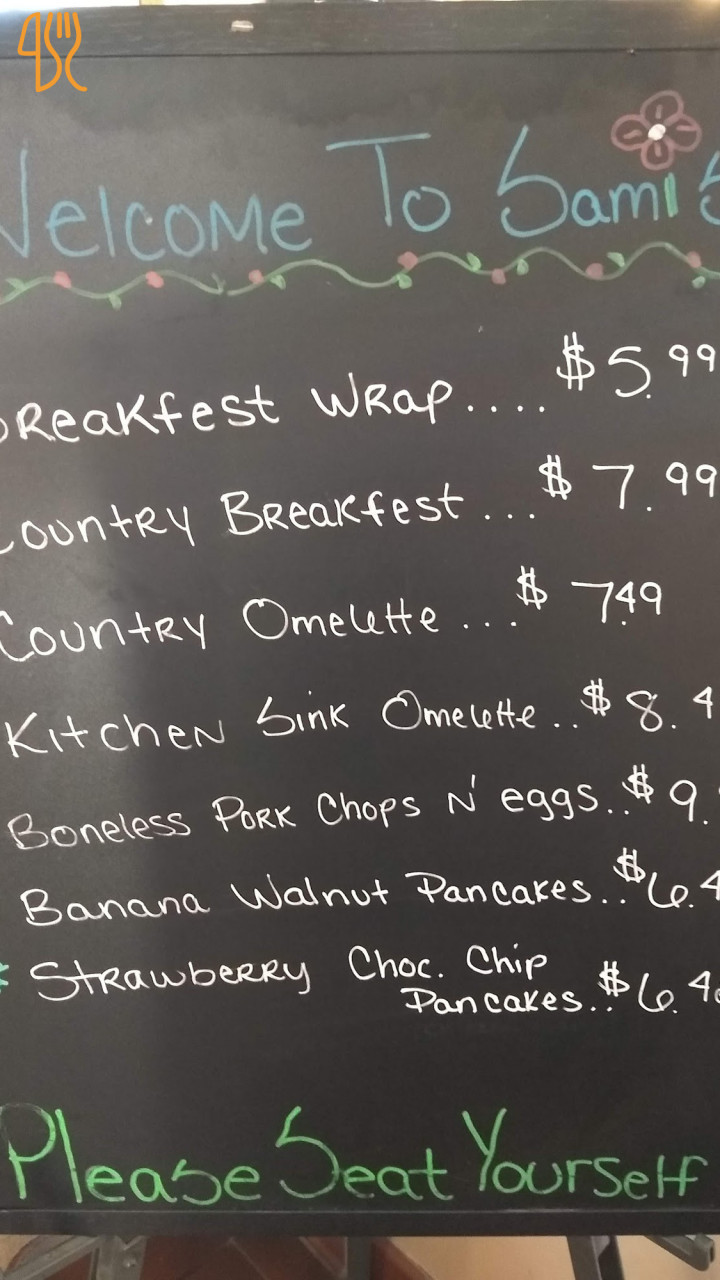 Welcome To Sami's
Breakfest Wrap.... $5.99
Country Breakfest ... $7.99
Country Omelette ... $7.49
Kitchen Sink Omelette .. $8.4
Boneless Pork Chops N' eggs.. $9.
Banana Walnut Pancakes.. $6.4
* Strawberry Choc. Chip
Pancakes.. $6.4
Please Seat Yourself